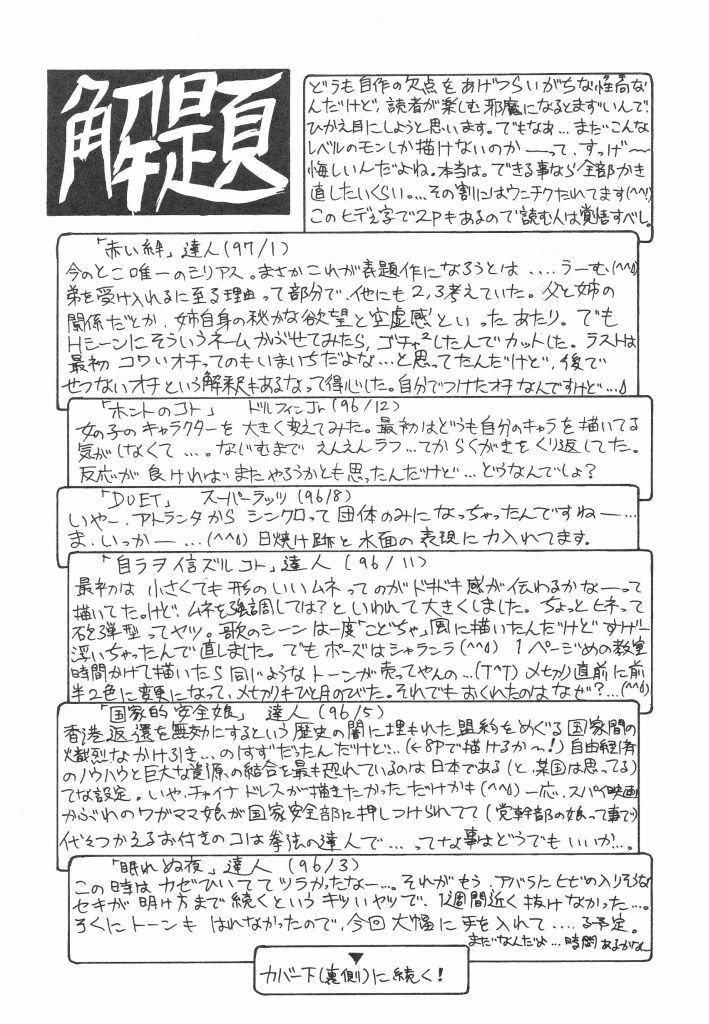 解題
どうも自作の欠点をあげつらいがちな性向な
んだけど、読者が楽しむ邪魔になるとまずいんで、
ひかえ目にしようと思います。でもなぁ…まだこんな
レベルのモンしか描けないのか――って、すっげ〜
悔しいんだよね。本当は。できる事なら全部かき
直したいくらい。…その割にはウンチクたれてます(^^;)
このヒデえ字で2Pもあるので読む人は覚悟すべし。
「赤い絆」達人(97/1)
今のとこ唯一のシリアス。まさかこれが表題作になろうとは....うーむ(^^;)
弟を受け入れるに至る理由って部分で、他にも2,3考えていた。父と姉の
関係だとか、姉自身の秘かな欲望と空虚感といったあたり。でも
Hシーンにそういうネームかぶせてみたら、ゴチャ²したんでカットした。ラストは
最初コワいオチってのもいまいちだよな…と思ってたんだけど、後で
せつないオチという解釈もあるなって得心した。自分でつけたオチなんですけど…
「ホントのコト」 ドルフィンJr(96/12)
女の子のキャラクターを大きく変えてみた。最初はどうも自分のキャラを描いてる
気がしなくて...。なじむまでえんえんラフ...てからくがきをくり返してた。
反応が良ければまたやろうかとも思ったんだけど…どうなんでしょ?
「DUET」 スーパーラッツ(96/8)
いやー、アトランタからシンクロって団体のみになっちゃったんですねー…
ま、いっかー…(^^;)日焼け跡と水面の表現に力入れてます。
「自ラヲ信ズルコト」達人(96/11)
最初は小さくても形のいいムネってのがドキドキ感が伝わるかなーって
描いてた。けど、ムネを強調しては?といわれて大きくしました。ちょっとヒネって
砲弾型ってヤツ。歌のシーンは一度「こどちゃ」風に描いたんだけどすげー
浮いちゃったんで直しました。でもポーズはシャラニラ(^^;) 1ページめの教室
時間かけて描いたら同じようなトーンが売ってやんの…(T^T)メ切り直前に前
半2色に変更になって、メ切りもひと月のびた。それでもおくれたのはなぜ?…(^^;)
「国家的安全娘」達人(96/5)
香港返還を無効にするという歴史の闇に埋もれた盟約をめぐる国家間の
熾烈なかけ引き…のはずだったんだけど…(←8Pで描けるか〜!)自由経済
のノウハウと巨大な資源の結合を最も恐れているのは日本である(と、某国は思ってる)
てな設定。いや、チャイナドレスが描きたかっただけかも(^^;)一応、スパイ映画
かぶれのワガママ娘が国家安全部に押しつけられてて(党幹部の娘って事で)
代々つかえるお付きのコは拳法の達人で…ってな事はどうでもいいか…。
「眠れぬ夜」達人(96/3)
この時はカゼひいててツラかったなー…。それがもう、アバラにヒビの入りそうな
セキが明け方まで続くというキツいヤツで、1週間近く抜けなかった…。
ろくにトーンもはれなかったので、今回大幅に手を入れて....る予定。
まだなんだよ…時間あるかなー
▼
カバー下(裏側)に続く!